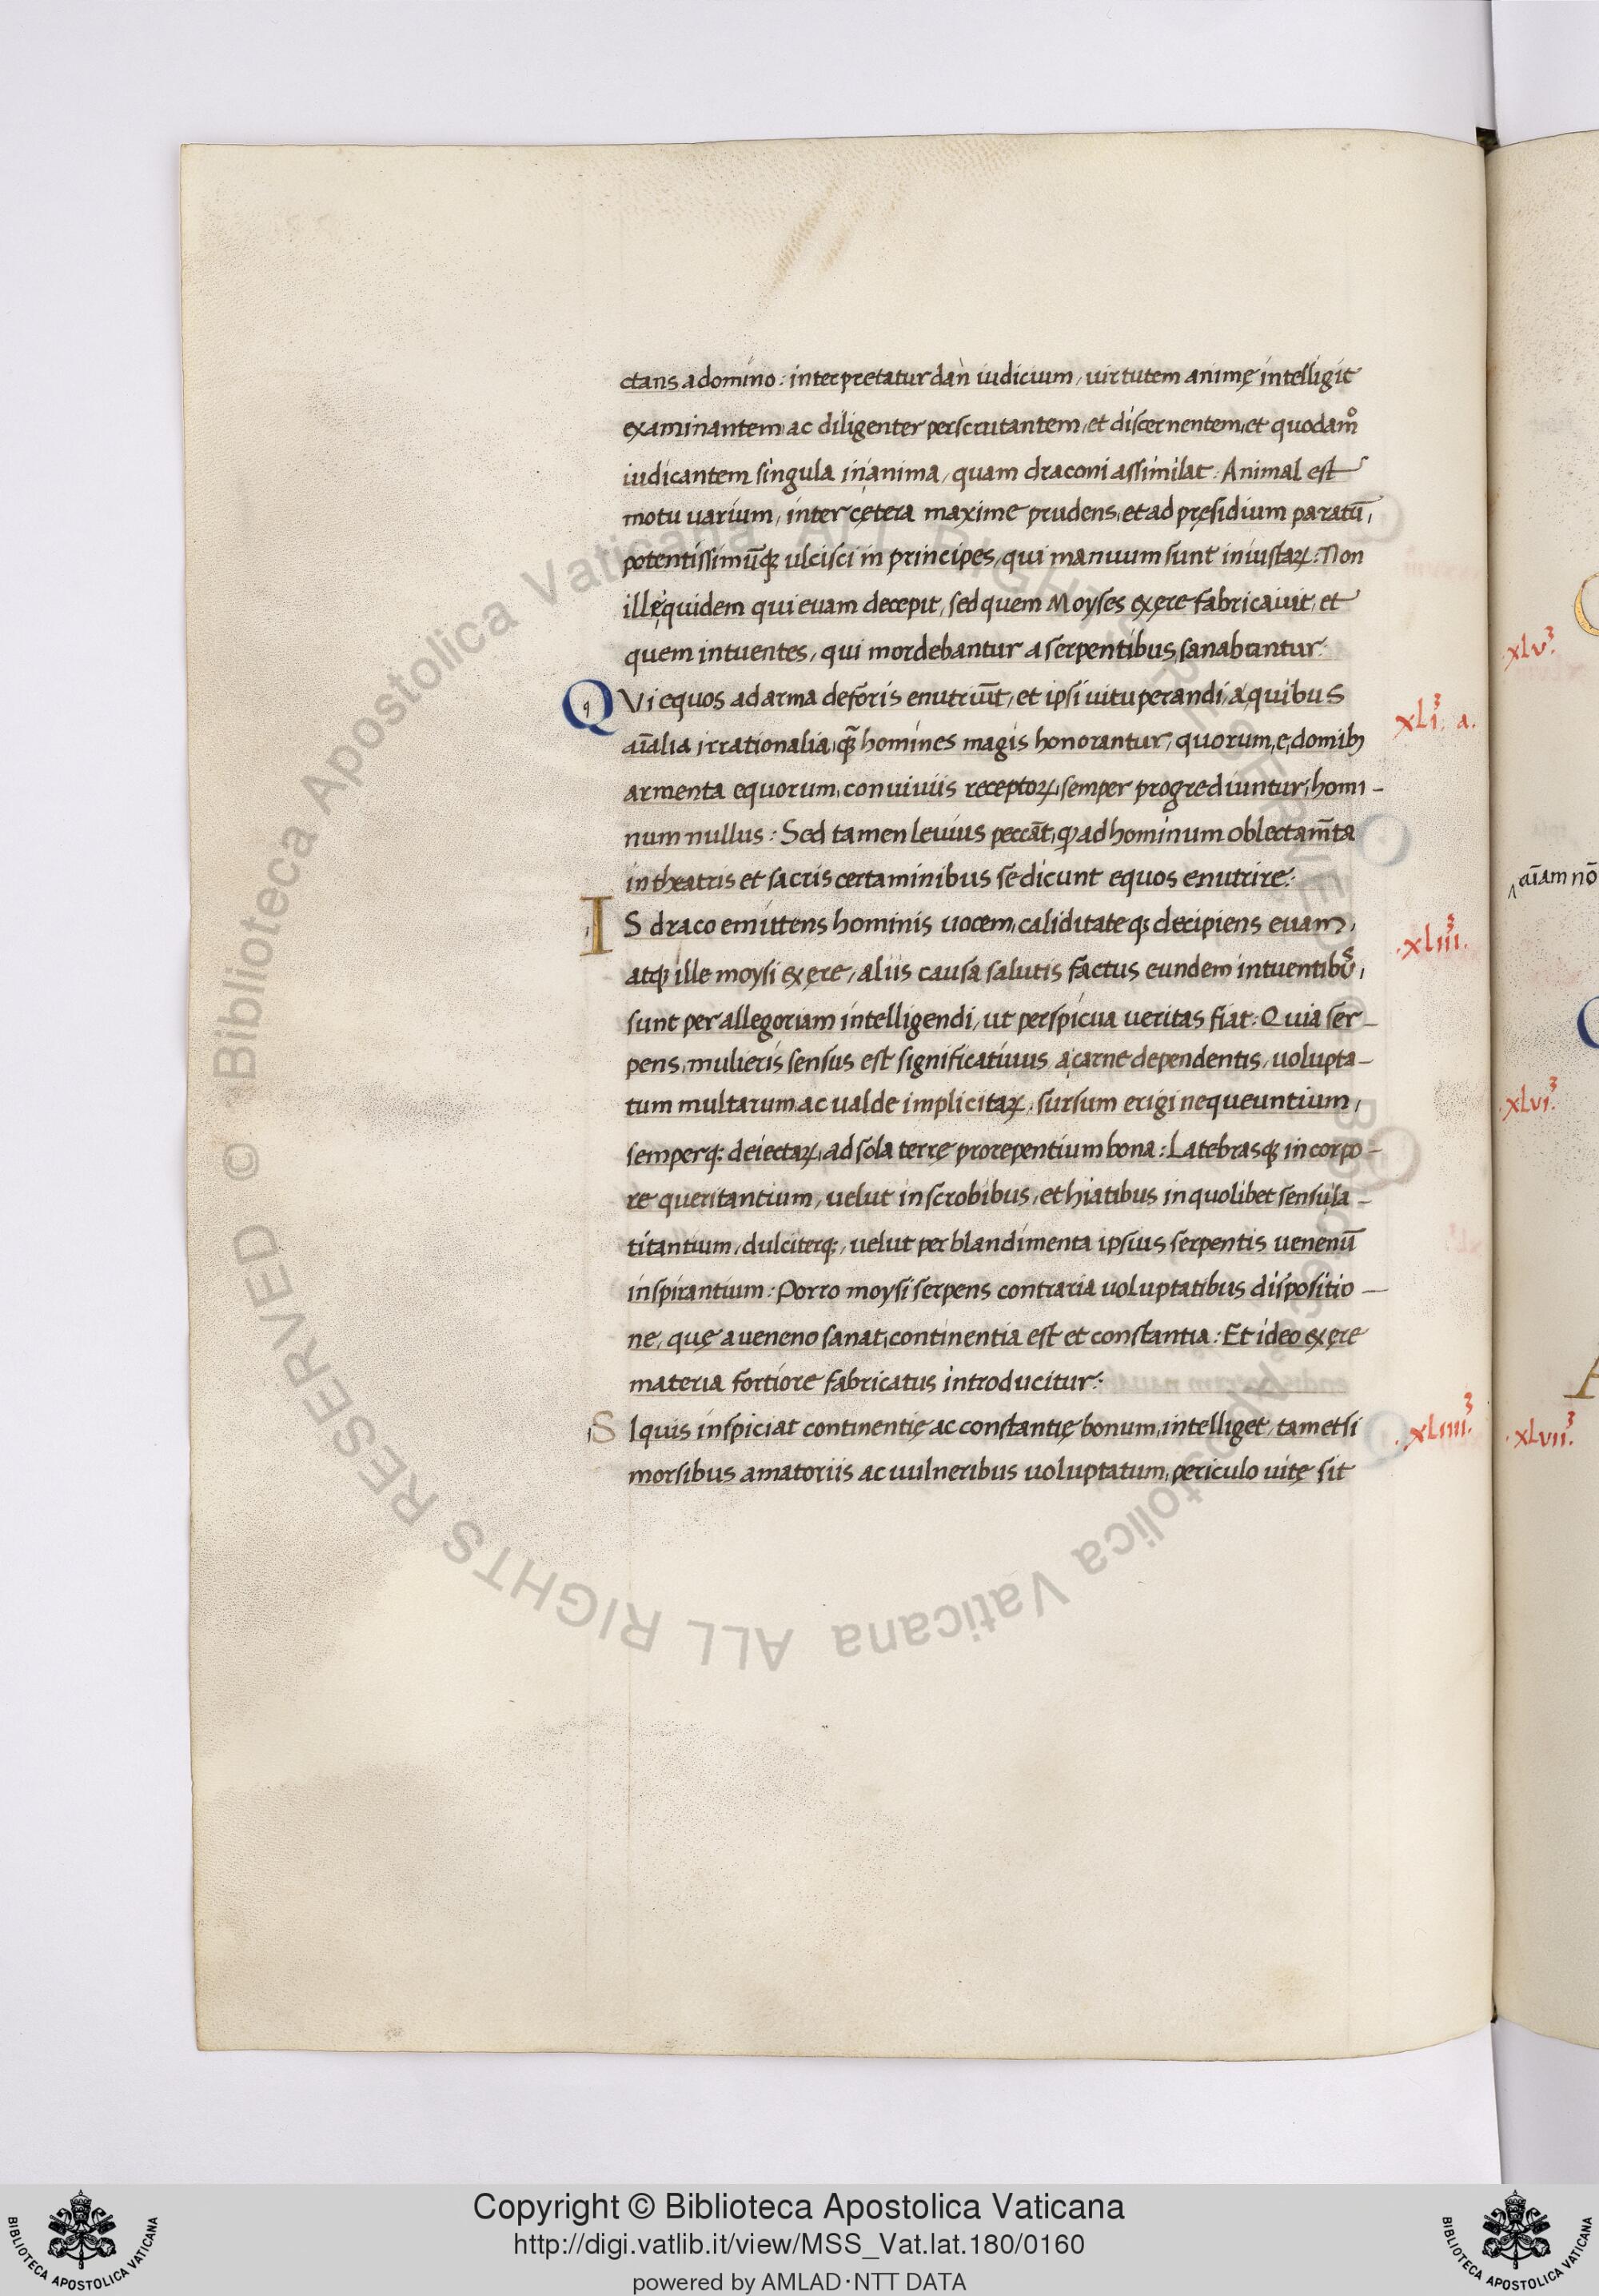 ctans a domino: interpretatur dan iudicium, uirtutem animę intelligit
examinantem ac diligenter perscrutantem, et discernentem, et quodam̊
iudicantem singula in anima, quam draconi assimilat. Animal est
motu uarium, inter cętera maxime prudens, et ad pręsidium paratū,
potentissimūqꝫ ulcisci in principes, qui manuum sunt iniustaꝝ: Non
ille quidem qui euam decepit, sed quem Moyses ex ęre fabricauit, et
quem intuentes, qui mordebantur a serpentibus, sanabantur.
QVi equos ad arma deforis enutriūt, et ipsi uituperandi, a quibus
aīalia irrationalia, qꝫ̄ homines magis honorantur, quorum, e, domibꝫ
armenta equorum, conuiuiis receptoꝝ, semper progrediuntur, homi-
num nullus: Sed tamen leuius peccāt, ꝙ ad hominum oblectam̄ta
in theatris et sacris certaminibus se dicunt equos enutrire:
IS draco emittens hominis uocem, caliditateqꝫ decipiens euam,
atqꝫ ille moysi ex ęre, aliis causa salutis factus eundem intuentibus,
sunt per allegoriam intelligendi, ut perspicua ueritas fiat: Quia ser-
pens, mulieris sensus est significatiuus, a carne dependentis, uolupta-
tum multarum ac ualde implicitaꝝ, sursum erigi nequeuntium,
semperqꝫ deiectaꝝ, ad sola terrę prorepentium bona: Latebrasqꝫ in corpo-
re queritantium, uelut in scrobibus, et hiatibus in quolibet sensu la-
titantium, dulciterqꝫ, uelut per blandimenta ipsius serpentis uenenū
inspirantium: Porro moysi serpens contraria uoluptatibus dispositio-
ne, quę a ueneno sanat, continentia est et constantia: Et ideo ex ęre
materia fortiore fabricatus introducitur:
SI quis inspiciat continentię ac constantię bonum, intelliget, tametsi
morsibus amatoriis ac uulneribus uoluptatum, periculo uitę sit
xLi.³ a.
.xLiii.³
.xLiiii.³
.xLv.³
aīam nō
.xLvi.³
.xLvii.³
© Biblioteca Apostolica Vaticana ALL RIGHTS RESERVED © Biblioteca Apostolica Vaticana ALL RIGHTS RESERVED
Copyright © Biblioteca Apostolica Vaticana
http://digi.vatlib.it/view/MSS_Vat.lat.180/0160
powered by AMLAD·NTT DATA
BIBLIOTECA APOSTOLICA VATICANA
BIBLIOTECA APOSTOLICA VATICANA